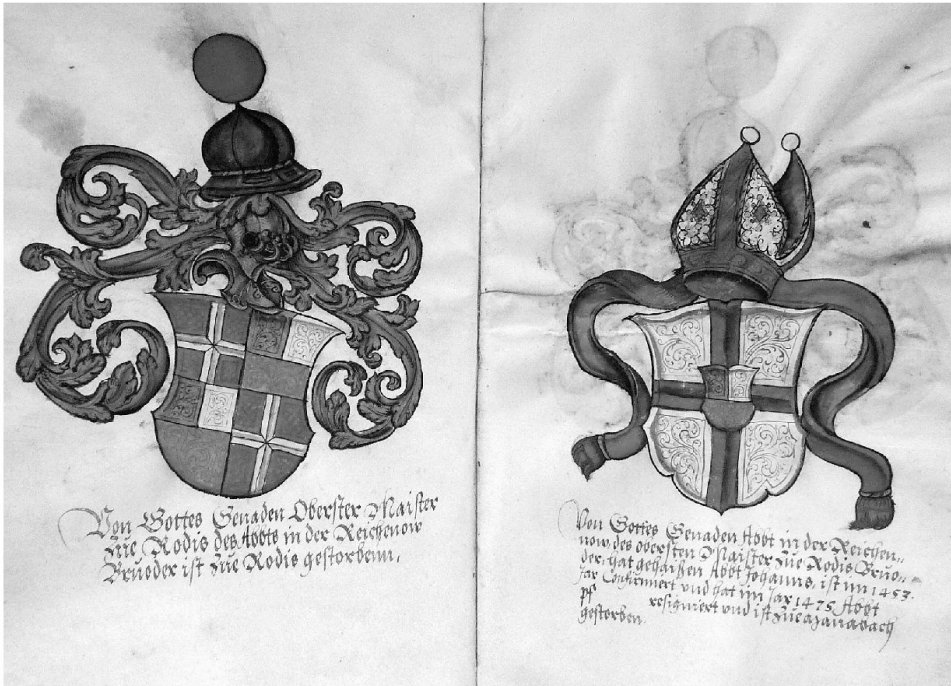 Von Gottes Genaden Oberster Maister
zue Rodis des Abbts in der Reichenow
Brueder ist zue Rodis gestorbenn.
Von Gottes Genaden Abbt in der Reichen„
now, des obersten Maister zue Rodis Brue„
der, hat gehaißen Abbt Johanns, ist im 1453.
Jar Confirmiert vnd hat im Jar 1475 Abbt
resigniert vnd ist zue
gestorben.